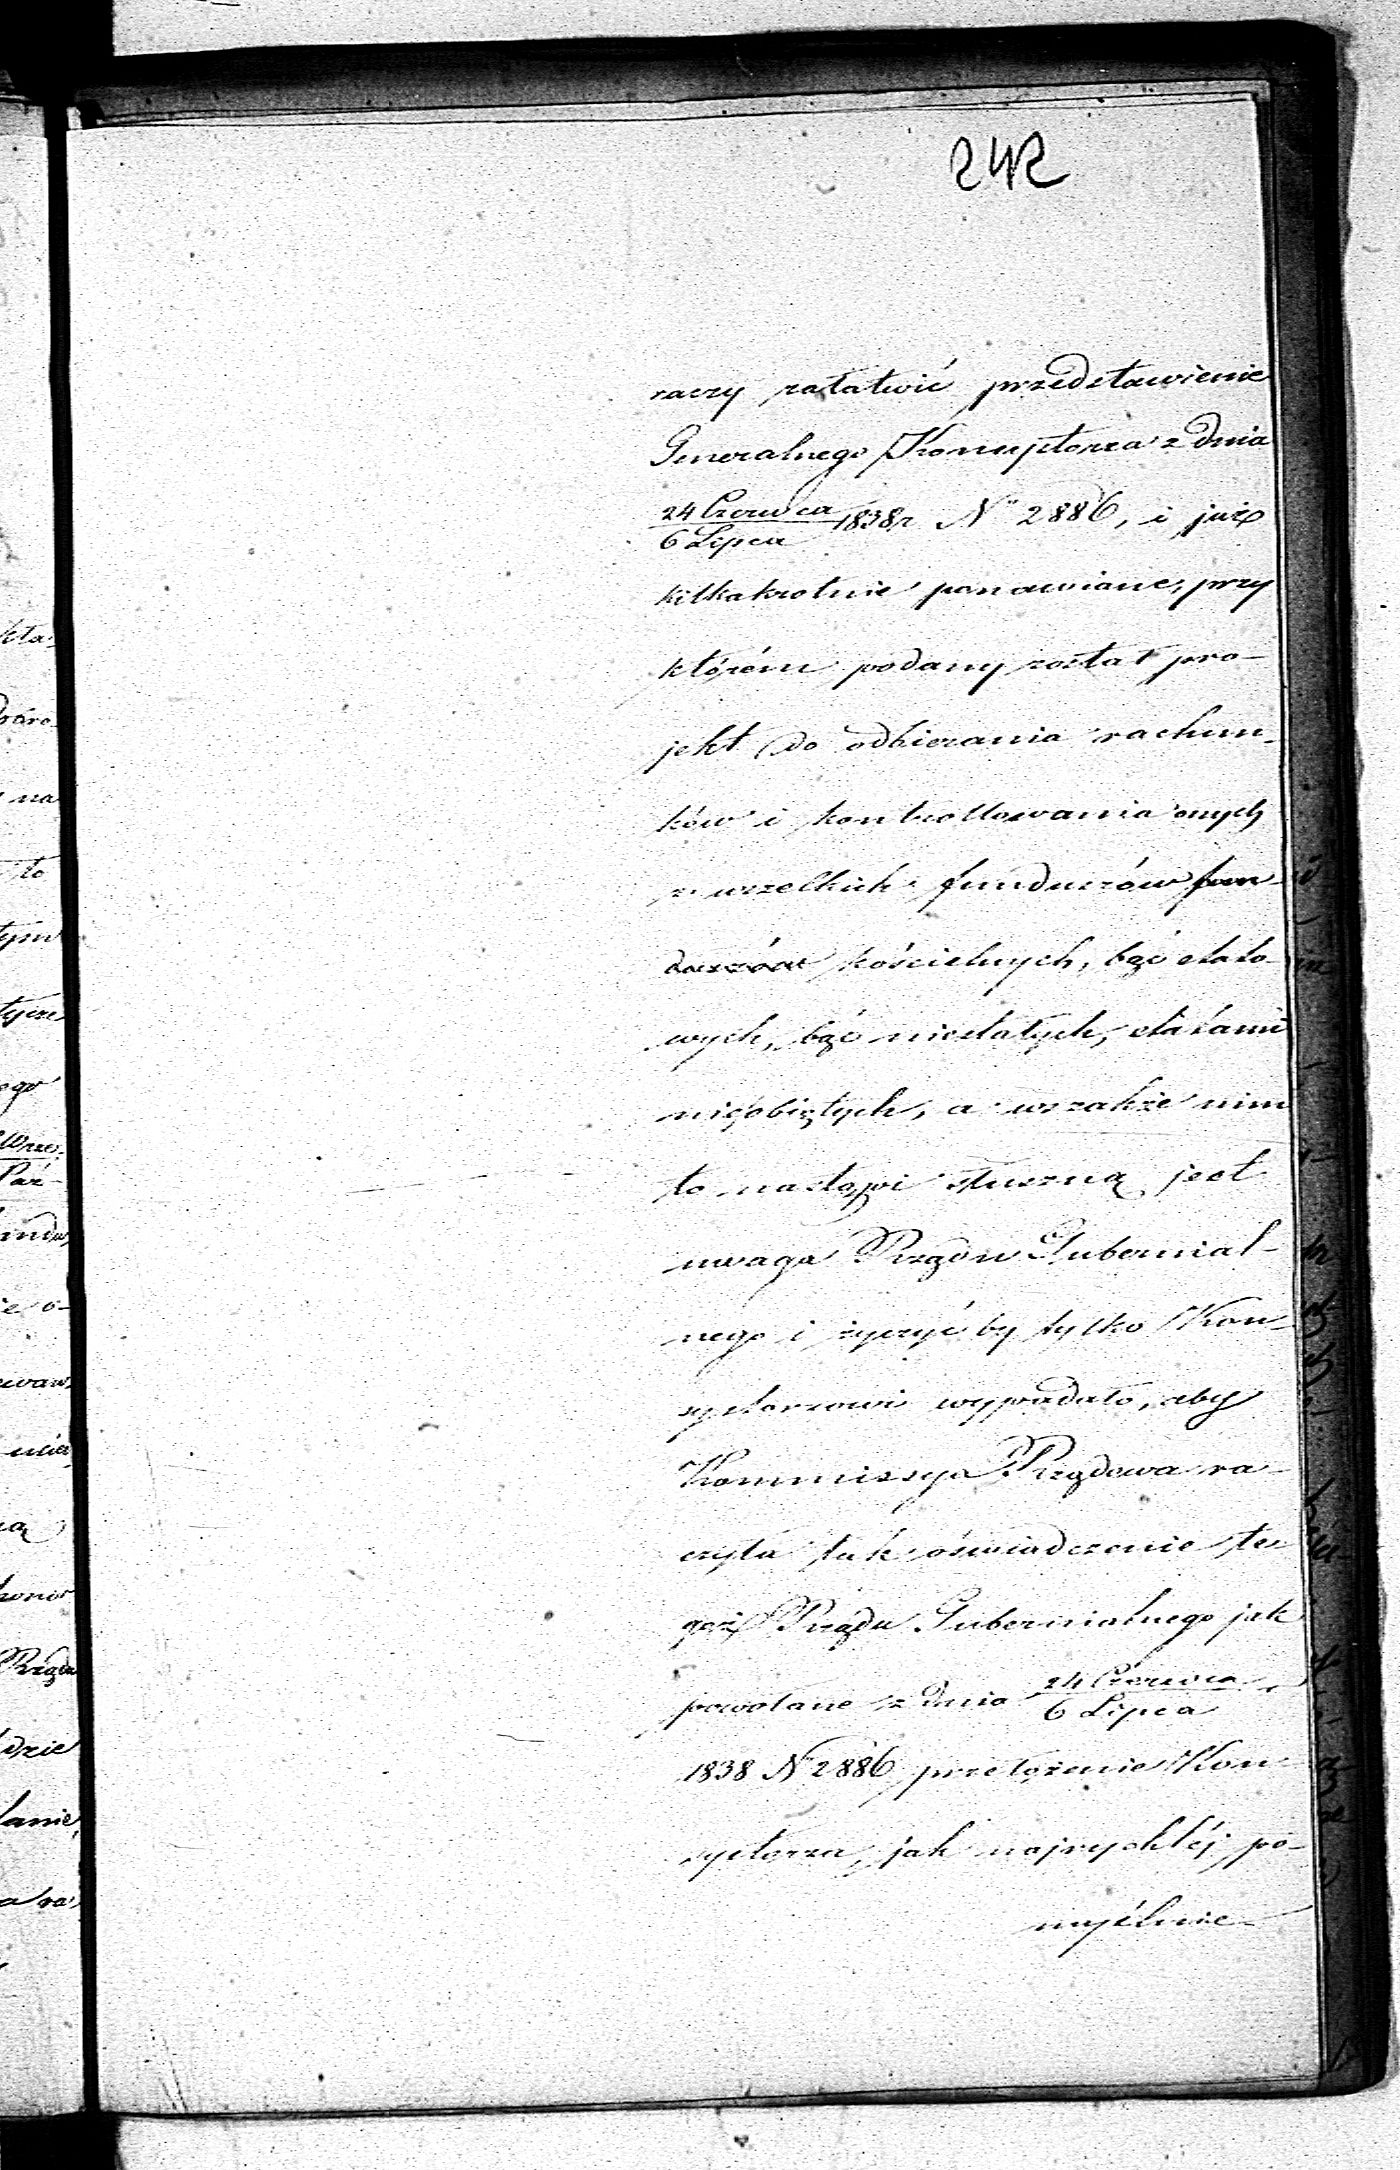 242
raczy załatwić przedstawienie
Generalnego Konsystorza z dnia
24 Czerwca / 6 Lipca 1838 r N° 2886, i już
kilkakrotnie ponawiane, przy
którém podany został pro-
jekt do odbierania rachun-
ków i kontrollowania onych
z wszelkich funduszów fun-
duszów kościelnych, bąć etato-
wych, bąć niestałych, etatami
nieobjętych, a wszakże nim
to nastąpi słuszną jest
uwaga Rządu Gubernial-
nego i życzyć by tylko Kon-
systorzowi wypadało, aby
Kommissya Rządowa ra-
czyła tak oświadczenie te-
goż Rządu Gubernialnego jak
powołane z dnia 24 Czerwca / 6 Lipca
1838 N° 2886 przełożenie Kon-
systorza, jak najrychléj po-
myślnie